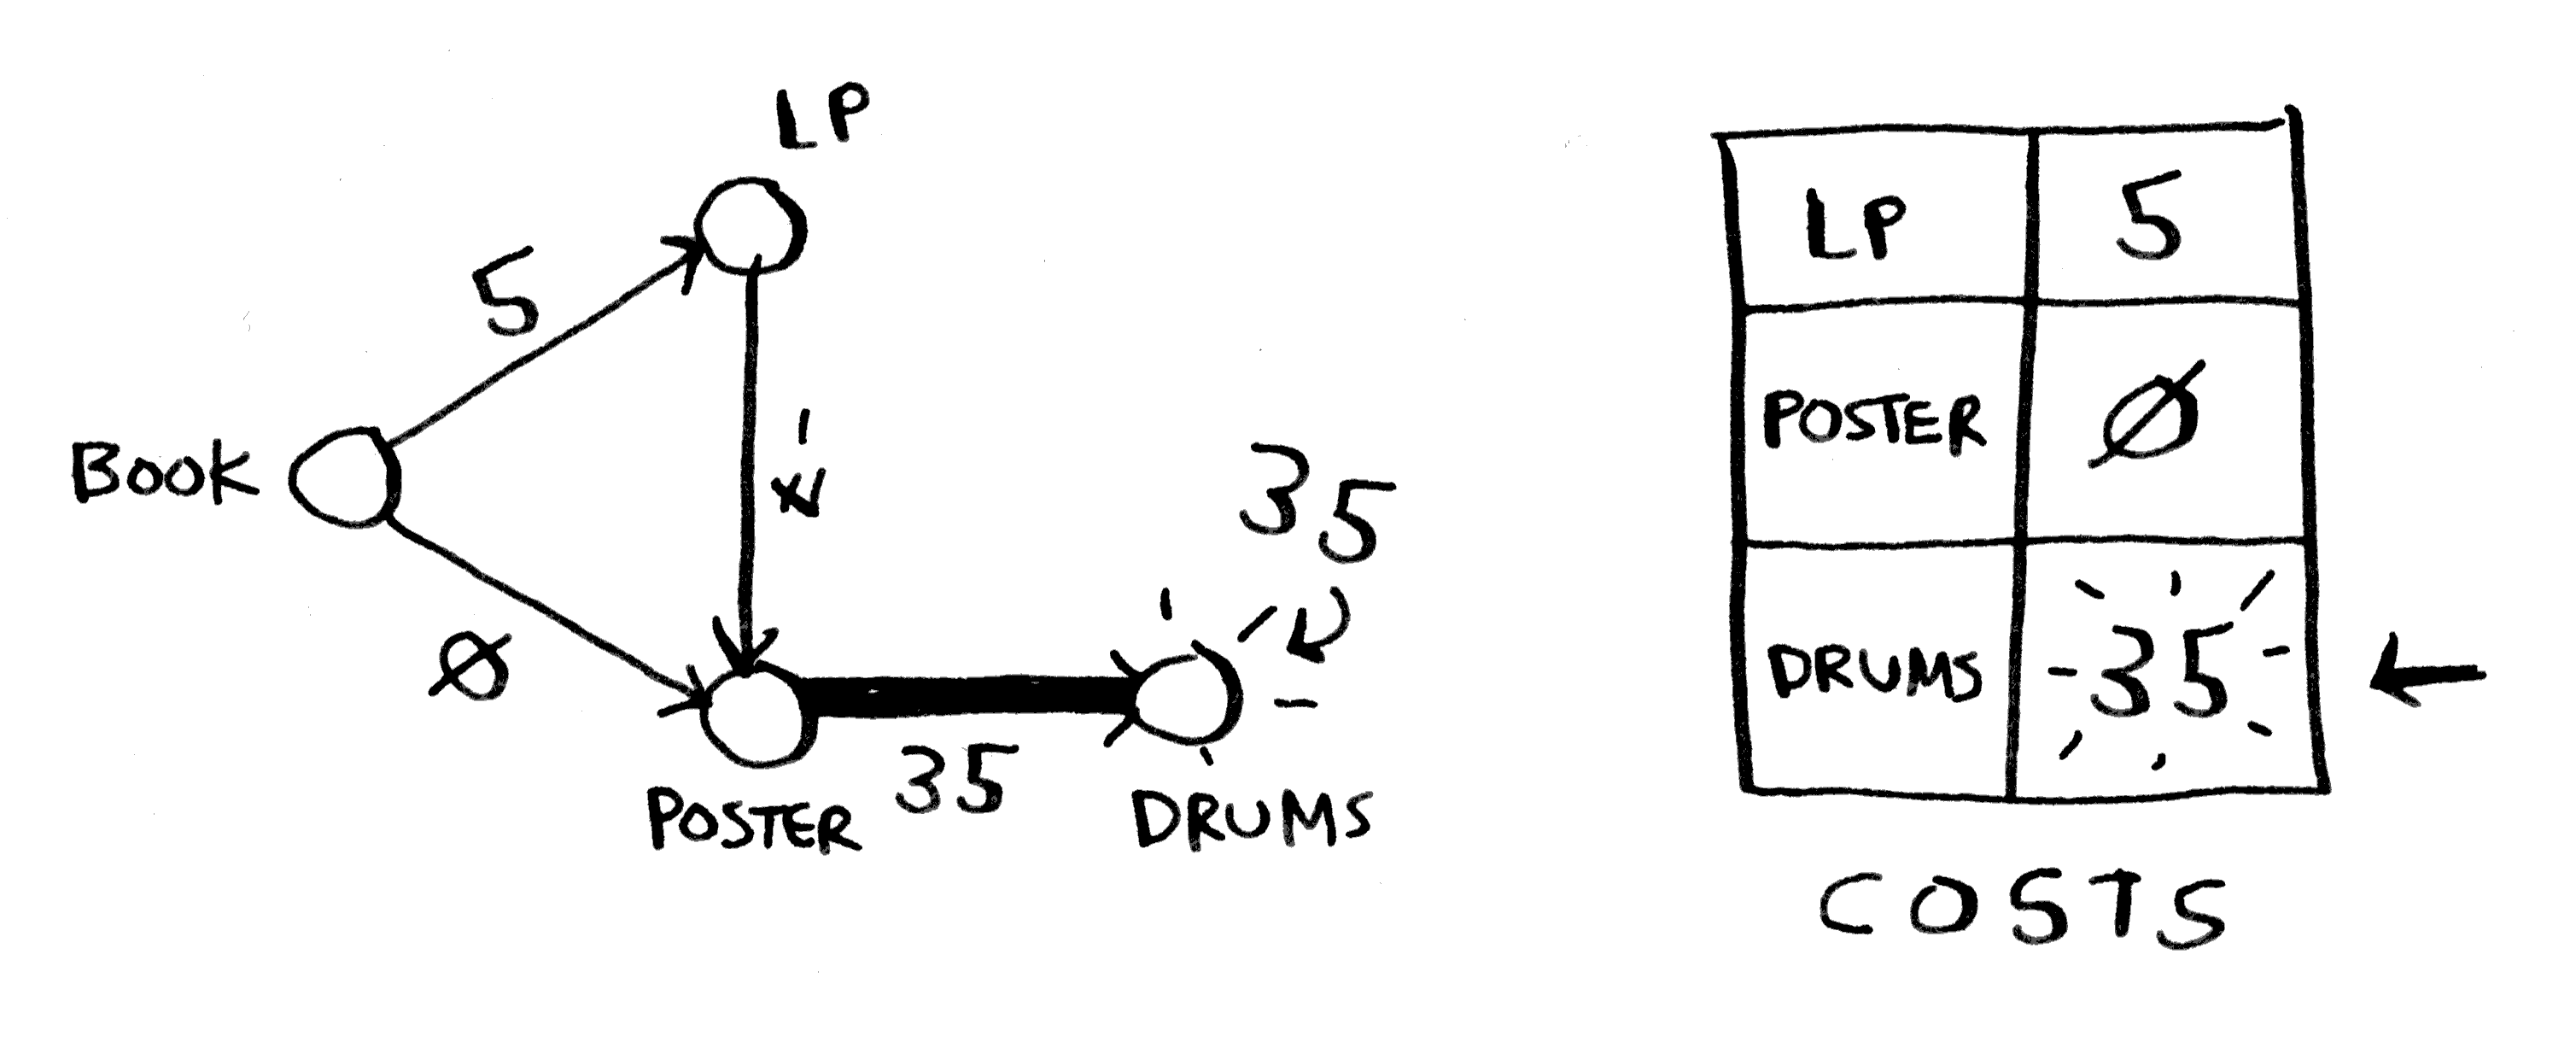 LP
5
BOOK
-7
35
Ø
35
POSTER
DRUMS
LP 5
POSTER Ø
DRUMS 35
COSTS